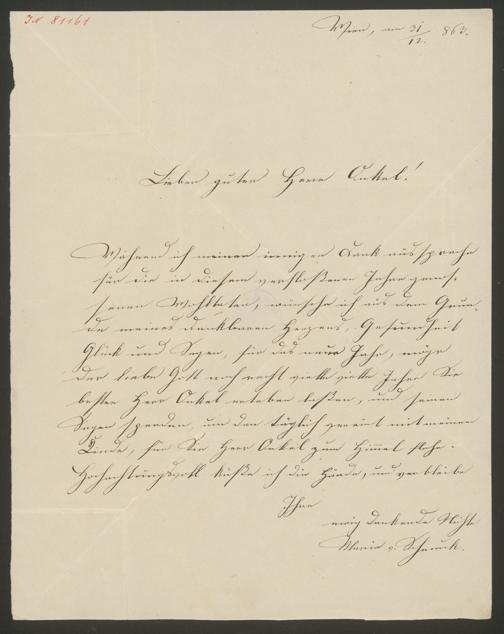 IN 81161
Wien, am 31/12. 863.
Lieber guter Herr Onkel!
Während ich meinen innigen Dank ausspreche
für die in diesem verfloßenen Jahre genos-
senen Wohlthaten, wünsche ich aus dem Grun-
de meines dankbaren Herzens, Gesundheit
Glück und Segen, für das neue Jahr, möge
der liebe Gott noch recht viele viele Jahre Sie
bester Herr Onkel erleben laßen, und seinen
Segen spenden, um den täglich vereint mit meinem
Kinde, für Sie Herr Onkel zum Himmel flehe.
Hochachtungsvoll küße ich die Hände, und verbleibe
Ihre
ewig dankende Nichte
Maria v.